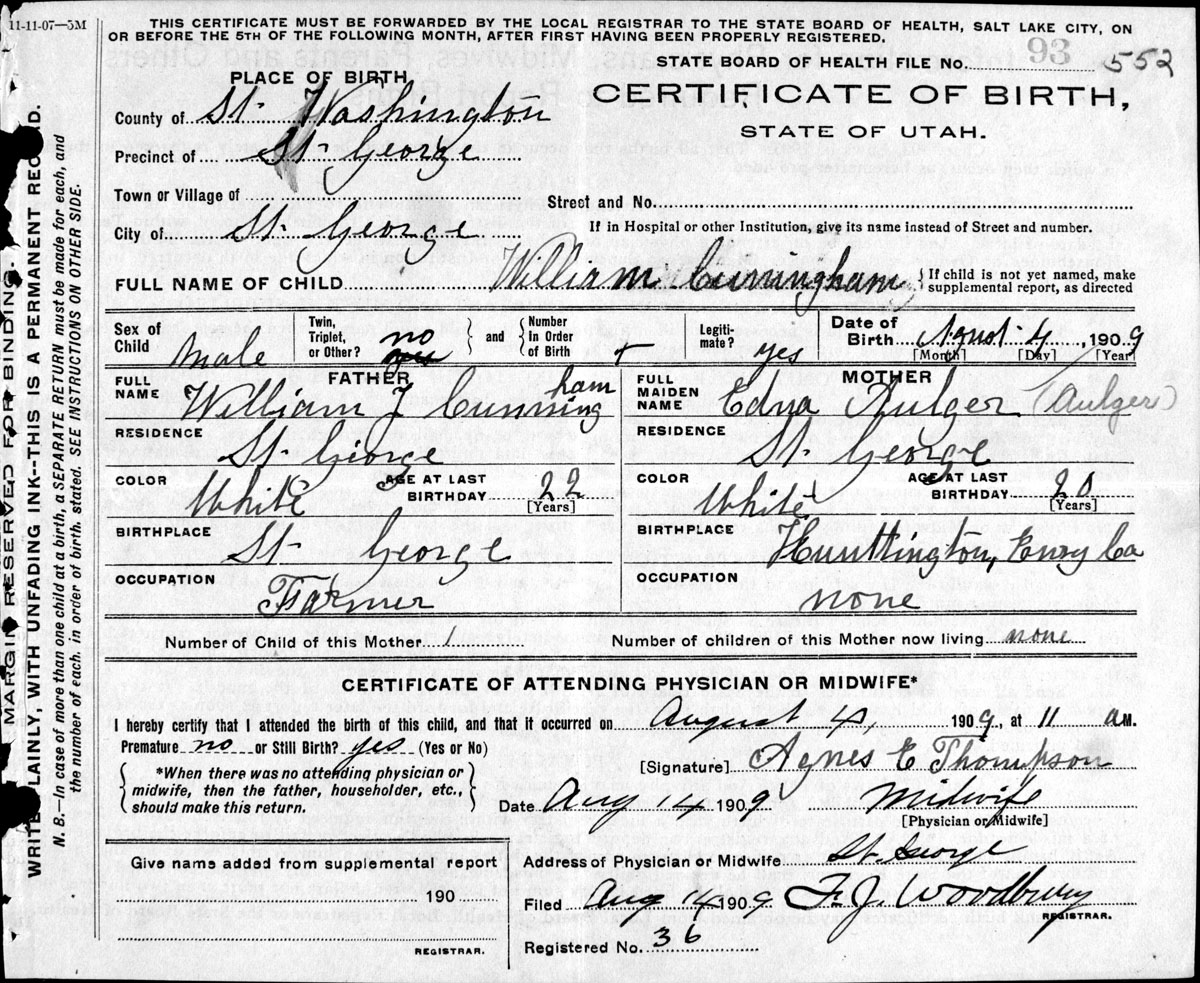 11-11-07—5M
THIS CERTIFICATE MUST BE FORWARDED BY THE LOCAL REGISTRAR TO THE STATE BOARD OF HEALTH, SALT LAKE CITY, ON
OR BEFORE THE 5TH OF THE FOLLOWING MONTH, AFTER FIRST HAVING BEEN PROPERLY REGISTERED.
STATE BOARD OF HEALTH FILE No. 93 552
PLACE OF BIRTH,
CERTIFICATE OF BIRTH,
STATE OF UTAH.
County of St. Washington
Precinct of St. George
Town or Village of
Street and No.
City of St. George
If in Hospital or other Institution, give its name instead of Street and number.
FULL NAME OF CHILD William Cunningham {If child is not yet named, make
supplemental report, as directed
Sex of Child Male
Twin, Triplet, or Other? no
and {Number In Order of Birth
Legiti-mate? yes
Date of Birth August 4, 1909
[Month] [Day] [Year]
FATHER
FULL NAME William J Cunningham
RESIDENCE St. George
COLOR White AGE AT LAST BIRTHDAY 22
[Years]
BIRTHPLACE St. George
OCCUPATION Farmer
MOTHER
FULL MAIDEN NAME Edna Aulger (Aulger)
RESIDENCE St. George
COLOR White AGE AT LAST BIRTHDAY 20
[Years]
BIRTHPLACE Hunttington, Emry Co
OCCUPATION none
Number of Child of this Mother 1
Number of children of this Mother now living none
CERTIFICATE OF ATTENDING PHYSICIAN OR MIDWIFE*
I hereby certify that I attended the birth of this child, and that it occurred on August 4, 1909, at 11 a M.
Premature no or Still Birth? yes (Yes or No)
{*When there was no attending physician or
midwife, then the father, householder, etc.,
should make this return.}
[Signature] Agnes E Thompson
Date Aug 14 1909 Midwife
[Physician or Midwife]
Give name added from supplemental report
190
REGISTRAR.
Address of Physician or Midwife St. George
Filed Aug 14 1909 F. J. Woodbury
REGISTRAR.
Registered No. 36
MARGIN RESERVED FOR BINDING.
WRITE LAINLY, WITH UNFADING INK--THIS IS A PERMANENT REC D.
N. B.—In case of more than one child at a birth, a SEPARATE RETURN must be made for each, and
the number of each, in order of birth, stated. SEE INSTRUCTIONS ON OTHER SIDE.